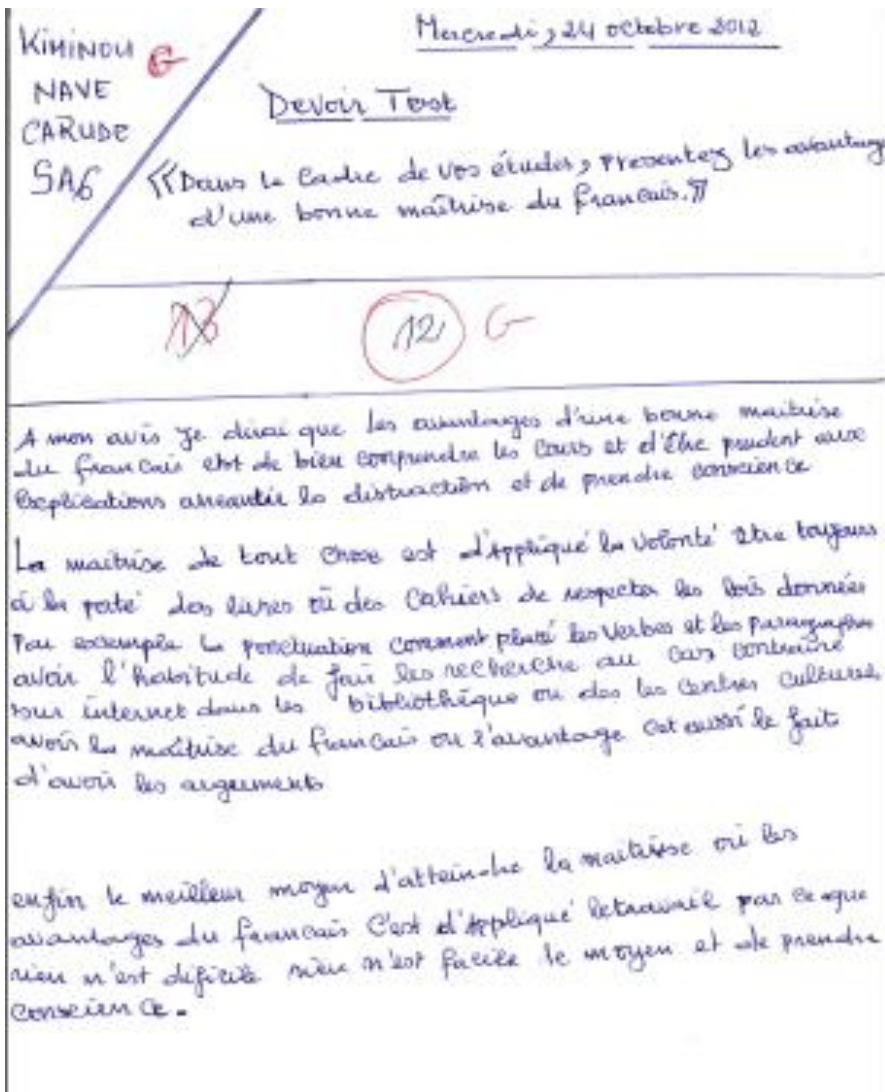 KIMINOU G
NAVE
CARUDE
SA6
Mercredi, 24 octobre 2012
Devoir Test
« Dans le Cadre de vos études, Presentez les avantag
d'une bonne maîtrise du francais. »
13
12 G
A mon avis Je dirai que les avantages d'une bonne maîtrise
du francais est de bien comprendre les Cours et d'être prudent aux
Explications aneantir la distraction et de prendre conscience
La maitrise de tout chose est d'Appliqué la volonté être toujours
à la porté des livres où des Cahiers de respecter les lois données
Par exemple la ponctuation comment placé les Verbes et les Paragraphes
avoir l'habitude de fair les recherche au cas contraire
sur internet dans les bibliothéque ou des les Centres Culturel
avoir la maîtrise du francais ou l'avantage est aussi le fait
d'avoir les arguments
enfin le meilleur moyen d'atteindre la maitrise où les
avantages du francais C'est d'Appliqué letravail par ce que
rien n'est dificile rien n'est facile le moyen et de prendre
Conscience.